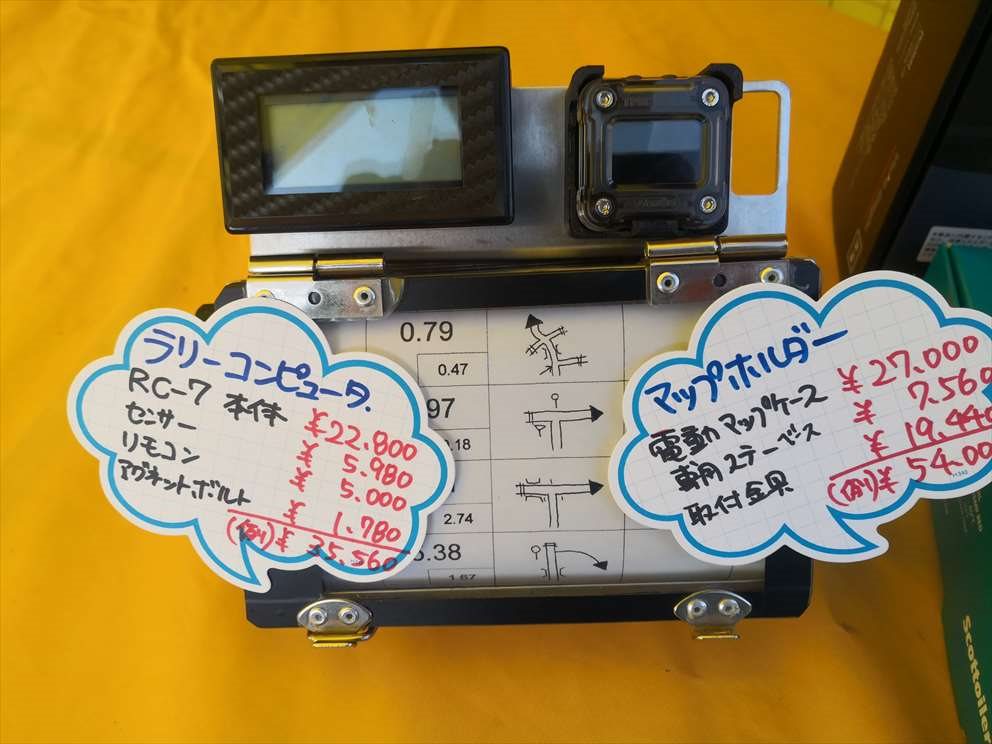 ラリーコンピュータ.
RC-7 本体 ¥22.800
センサー ¥5.980
リモコン ¥5.000
マグネットボルト ¥1.780
(例)¥35.560
マップホルダー
電動マップケース ¥27.000
専用ステーベース ¥7.560
取付金具 ¥19.440
(例)¥54.00
0.79
0.47
97
.18
2.74
5.38
1.67
Scottoiler